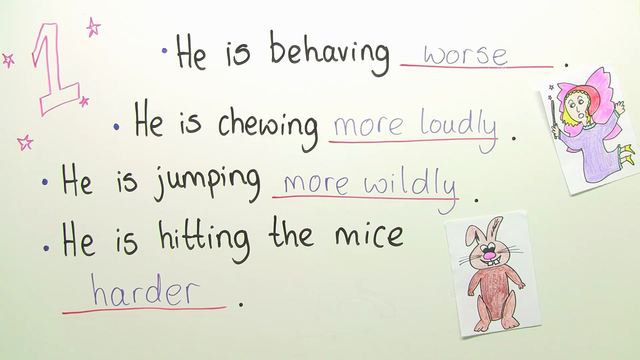 1
• He is behaving worse .
• He is chewing more loudly .
• He is jumping more wildly .
• He is hitting the mice
harder .